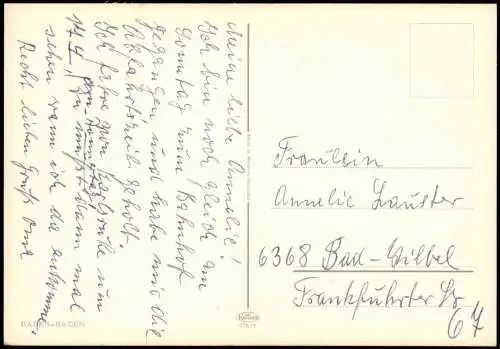 Meine liebe Amelie!
Ich bin noch gleich am
Sonntag zum Bahnhof
gegangen und habe mir die
Abfahrtszeit geholt.
Ich fahre von Karlsruhe um
17 4 am Sonntag!
Du musst dann mal
sehen wann ich da ankomme.
Recht lieben Gruß Oma
BADEN-BADEN
Fräulein
Amelie Lauster
6368 Bad-Vilbel
Frankfurter Str
67